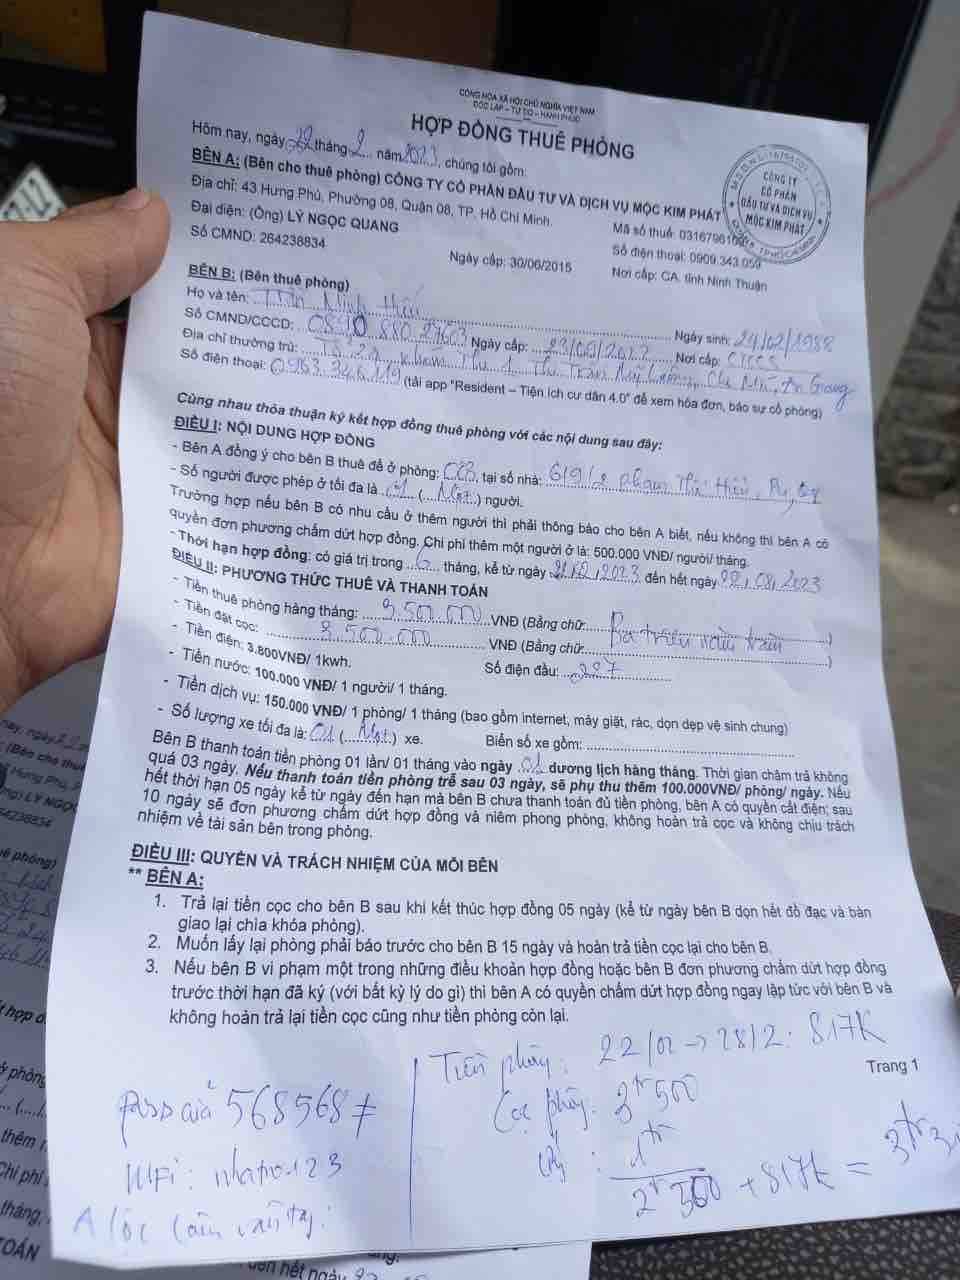 CỘNG HÒA XÃ HỘI CHỦ NGHĨA VIỆT NAM
ĐỘC LẬP – TỰ DO – HẠNH PHÚC
HỢP ĐỒNG THUÊ PHÒNG
Hôm nay, ngày 22 tháng 2 năm 2023, chúng tôi gồm:
BÊN A: (Bên cho thuê phòng) CÔNG TY CỔ PHẦN ĐẦU TƯ VÀ DỊCH VỤ MỘC KIM PHÁT
Địa chỉ: 43 Hưng Phú, Phường 08, Quận 08, TP. Hồ Chí Minh. Mã số thuế: 0316796102
Đại diện: (Ông) LÝ NGỌC QUANG Số điện thoại: 0909.343.059
Số CMND: 264238834 Ngày cấp: 30/06/2015 Nơi cấp: CA. tỉnh Ninh Thuận
CÔNG TY
CỔ PHẦN
ĐẦU TƯ VÀ DỊCH VỤ
MỘC KIM PHÁT
BÊN B: (Bên thuê phòng)
Họ và tên: Minh Ngày sinh: 24/02/1988
Số CMND/CCCD: Ngày cấp: Nơi cấp:
Địa chỉ thường trú: Tổ 29, khóm Thị 1, Thị Trấn Mỹ Luông, Chợ Mới, An Giang
Số điện thoại: 0963.346.119 (tải app "Resident – Tiện ích cư dân 4.0" để xem hóa đơn, báo sự cố phòng)
Cùng nhau thỏa thuận ký kết hợp đồng thuê phòng với các nội dung sau đây:
ĐIỀU I: NỘI DUNG HỢP ĐỒNG
- Bên A đồng ý cho bên B thuê để ở phòng: tại số nhà: Phạm Thế Hiển, P4, Q8
- Số người được phép ở tối đa là 01 (Một) người.
Trường hợp nếu bên B có nhu cầu ở thêm người thì phải thông báo cho bên A biết, nếu không thì bên A có
quyền đơn phương chấm dứt hợp đồng. Chi phí thêm một người ở là: 500.000 VNĐ/ người/ tháng.
- Thời hạn hợp đồng: có giá trị trong 6 tháng, kể từ ngày 22/02/2023 đến hết ngày 22/08/2023
ĐIỀU II: PHƯƠNG THỨC THUÊ VÀ THANH TOÁN
- Tiền thuê phòng hàng tháng: 3.500.000 VNĐ (Bằng chữ: Ba triệu năm trăm)
- Tiền đặt cọc: 3.500.000 VNĐ (Bằng chữ: )
- Tiền điện: 3.800VNĐ/ 1kwh. Số điện đầu: 287
- Tiền nước: 100.000 VNĐ/ 1 người/ 1 tháng.
- Tiền dịch vụ: 150.000 VNĐ/ 1 phòng/ 1 tháng (bao gồm internet, máy giặt, rác, dọn dẹp vệ sinh chung)
- Số lượng xe tối đa là: 01 (Một) xe. Biển số xe gồm:
Bên B thanh toán tiền phòng 01 lần/ 01 tháng vào ngày 01 dương lịch hàng tháng. Thời gian chậm trả không
quá 03 ngày. Nếu thanh toán tiền phòng trễ sau 03 ngày, sẽ phụ thu thêm 100.000VNĐ/ phòng/ ngày. Nếu
hết thời hạn 05 ngày kể từ ngày đến hạn mà bên B chưa thanh toán đủ tiền phòng, bên A có quyền cắt điện; sau
10 ngày sẽ đơn phương chấm dứt hợp đồng và niêm phong phòng, không hoàn trả cọc và không chịu trách
nhiệm về tài sản bên trong phòng.
ĐIỀU III: QUYỀN VÀ TRÁCH NHIỆM CỦA MỖI BÊN
** BÊN A:
1. Trả lại tiền cọc cho bên B sau khi kết thúc hợp đồng 05 ngày (kể từ ngày bên B dọn hết đồ đạc và bàn
giao lại chìa khóa phòng).
2. Muốn lấy lại phòng phải báo trước cho bên B 15 ngày và hoàn trả tiền cọc lại cho bên B.
3. Nếu bên B vi phạm một trong những điều khoản hợp đồng hoặc bên B đơn phương chấm dứt hợp đồng
trước thời hạn đã ký (với bất kỳ lý do gì) thì bên A có quyền chấm dứt hợp đồng ngay lập tức với bên B và
không hoàn trả lại tiền cọc cũng như tiền phòng còn lại.
Trang 1
Tiền phòng: 22/02 → 28/2: 817K
Cọc phòng: 3tr500
1tr
2tr500 + 817k = 3tr3
pass cửa 568568#
Wifi: nhatro123
A lộc làm vân tay: